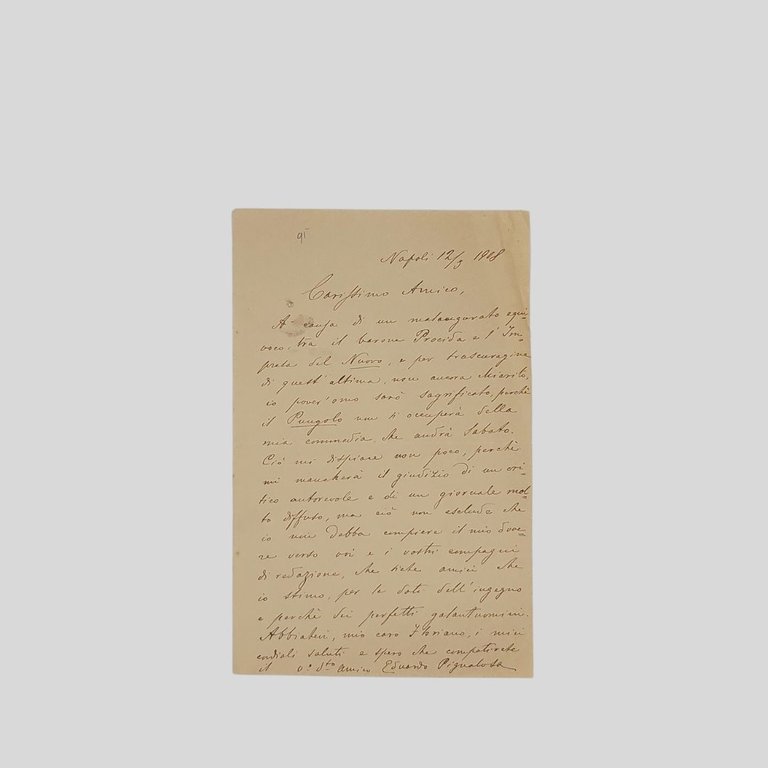 91
Napoli 12/3 1888
Carissimo Amico,
A causa di un malaugurato equi-
voco, tra il barone Procida e l'Im-
presa del Nuovo, e per trascuragine
di quest'ultima, non ancora
io pover'omo sarò sagrificato, perchè
il Pungolo non si occuperà della
mia commedia che andrà Sabato.
Ciò mi dispiace non poco, perchè
mi mancherà il giudizio di un cri-
tico autorevole e di un giornale mol-
to diffuso, ma ciò non esclude che
io non debba compiere il mio dove-
re verso voi e i vostri compagni
di redazione, che siete amici che
io stimo, per le doti dell'ingegno
e perchè dei perfetti galantuomini.
Abbiatevi, mio caro Floriano, i miei
cordiali saluti e spero che compatirete
il amico Eduardo Pignalosa